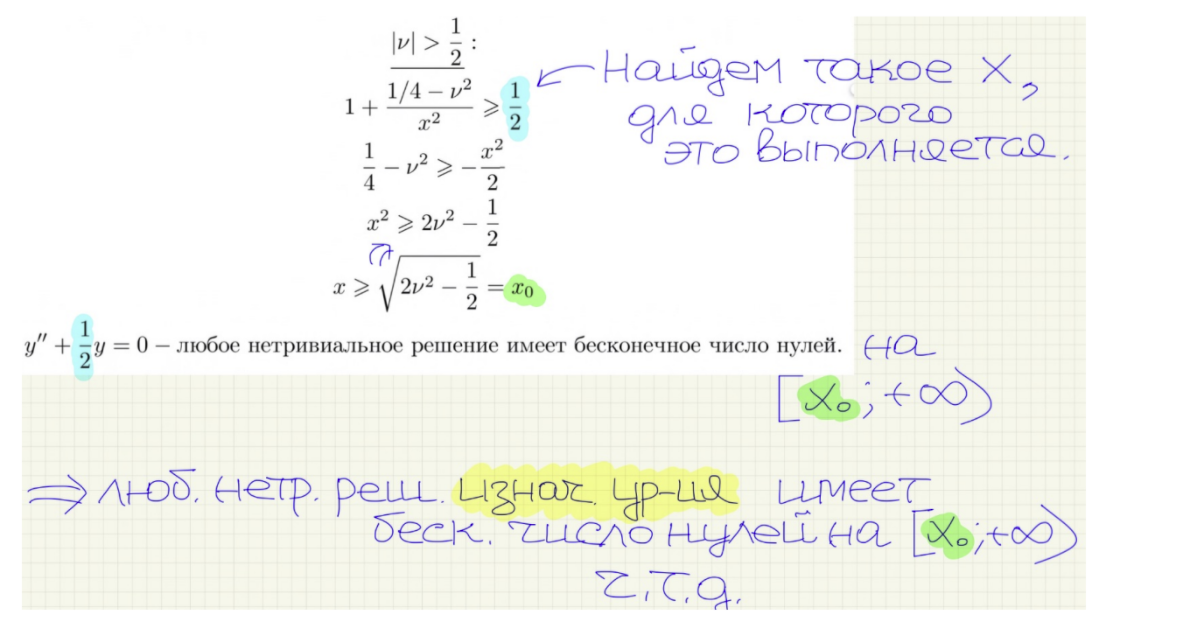 |ν| > 1/2 :
1 + (1/4 − ν²)/x² ⩾ 1/2
Найдем такое x,
для которого
это выполняется.
1/4 − ν² ⩾ −x²/2
x² ⩾ 2ν² − 1/2
x ⩾ √(2ν² − 1/2) = x₀
y″ + 1/2 y = 0 − любое нетривиальное решение имеет бесконечное число нулей. на
[x₀; +∞)
⇒ люб. нетр. реш. изнач. ур-ия имеет
беск. число нулей на [x₀; +∞)
ч.т.д.